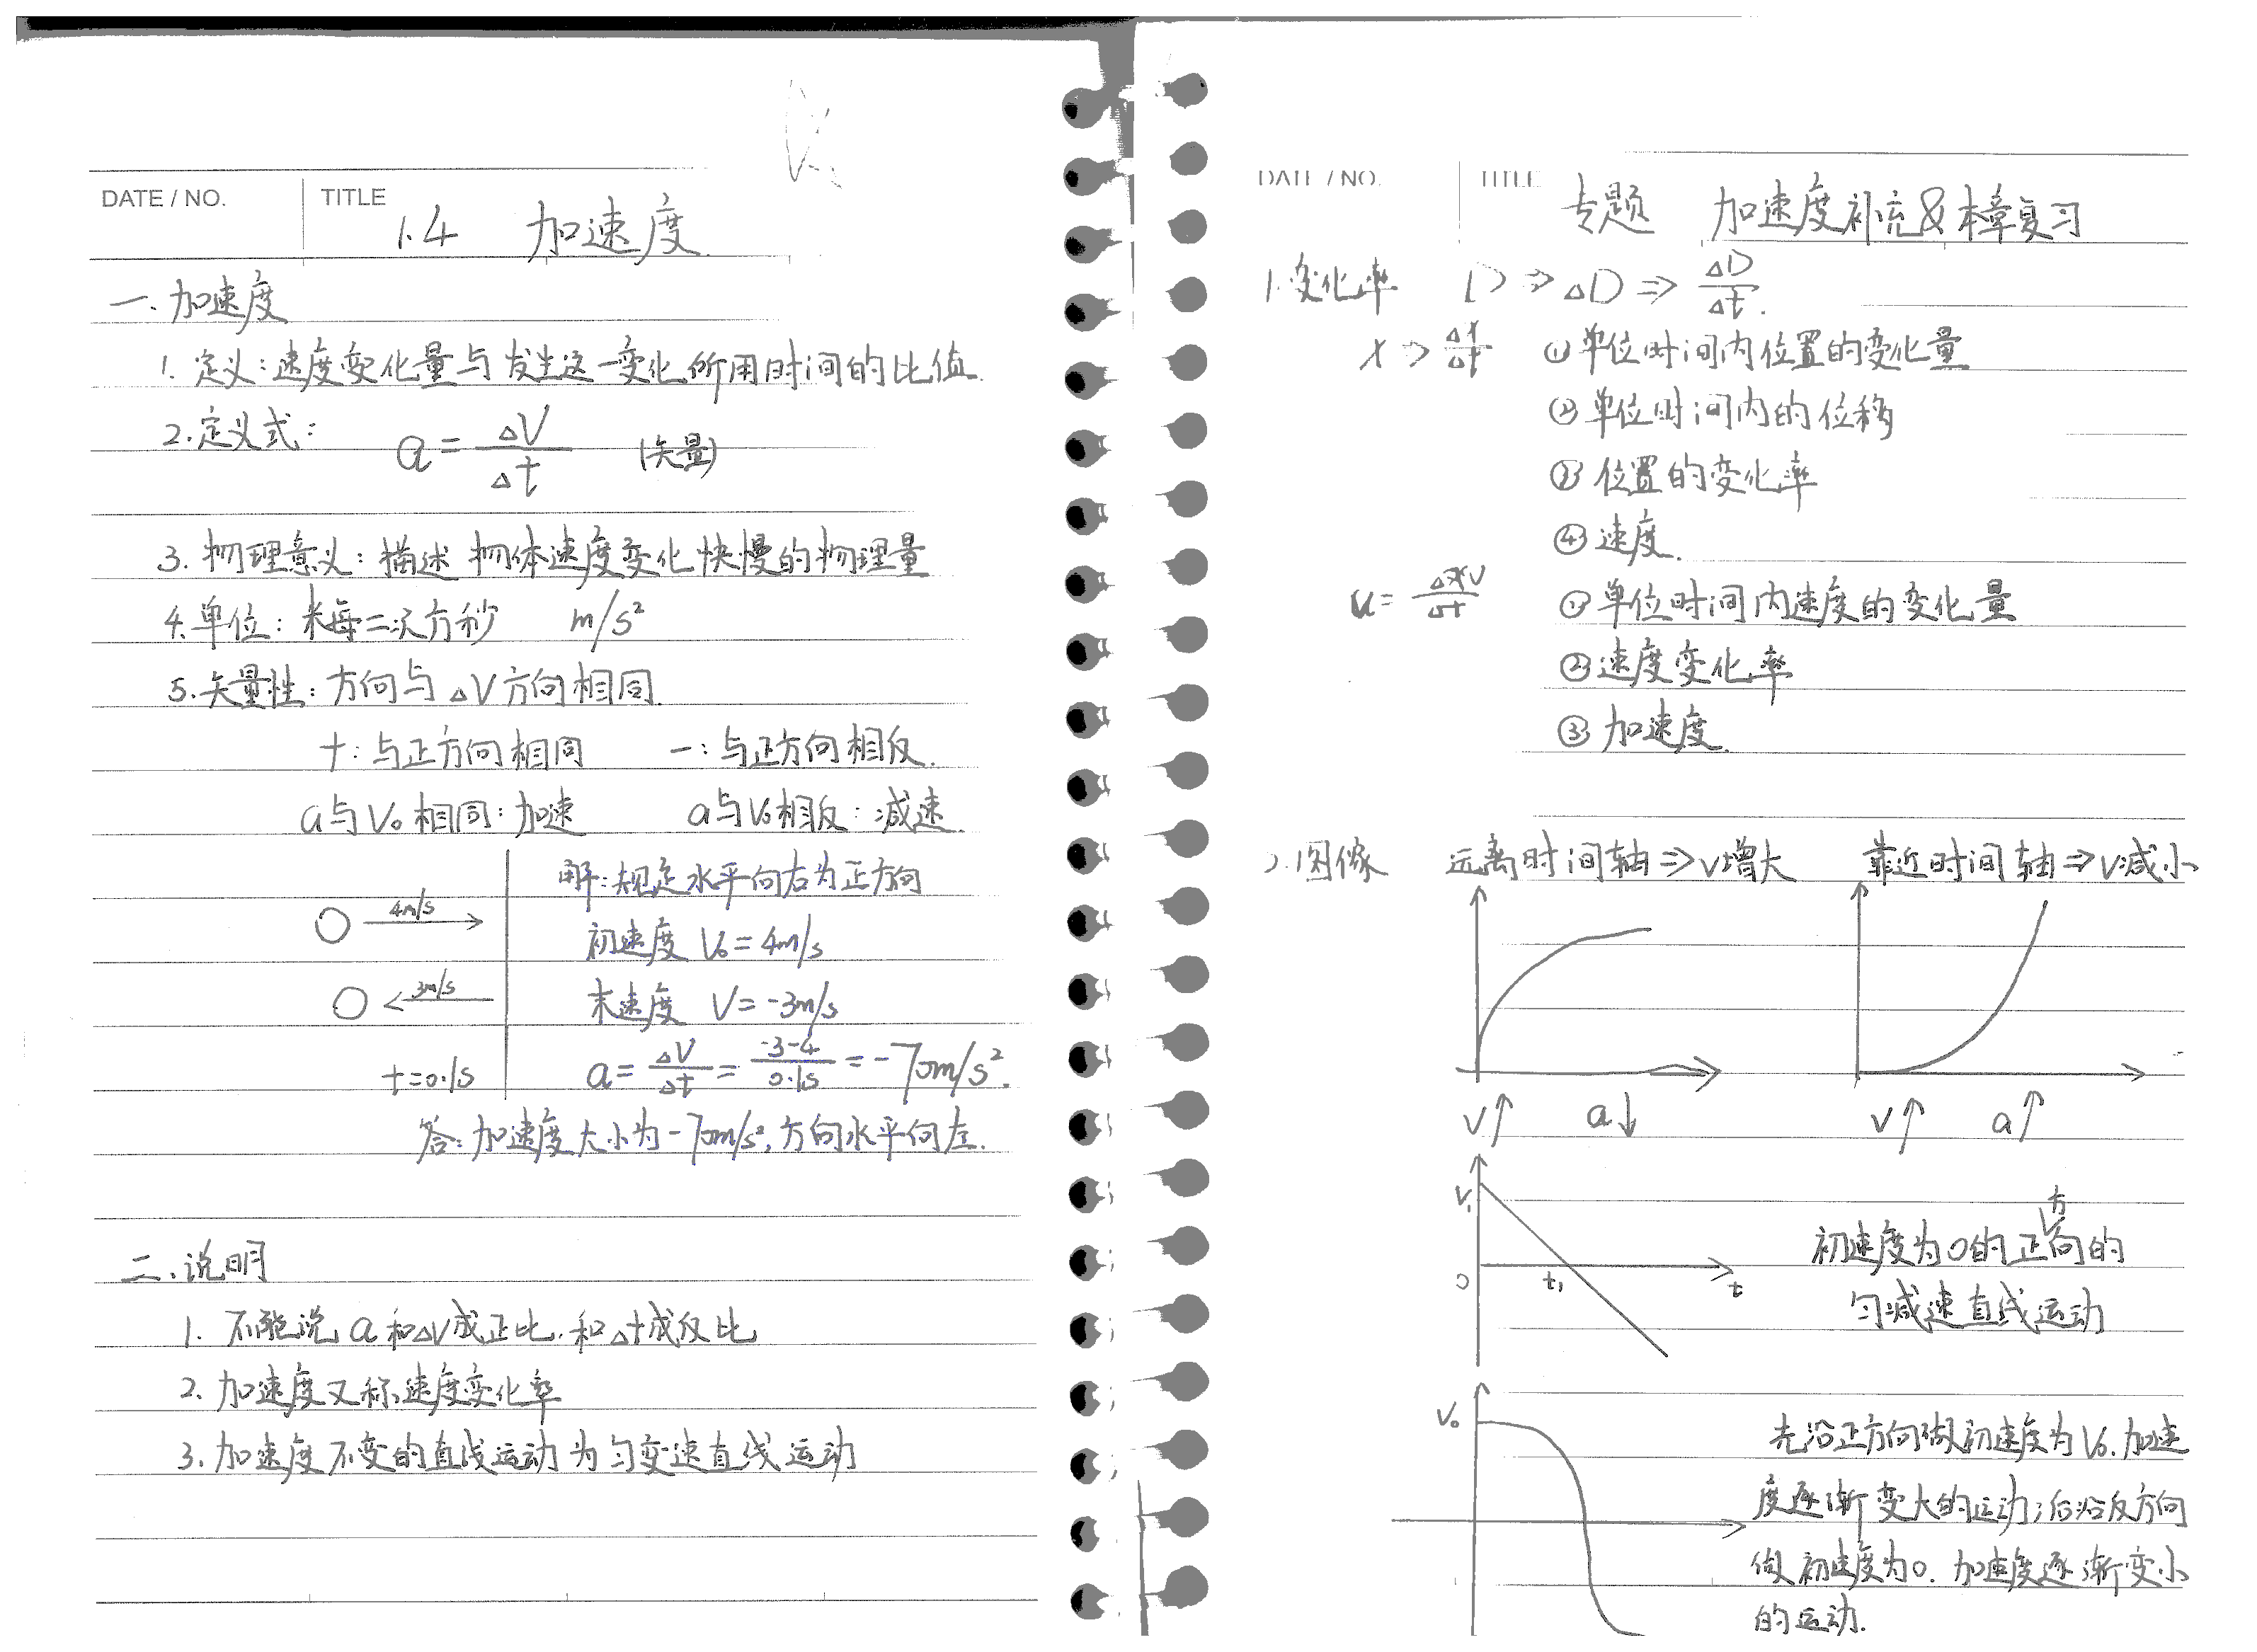 DATE / NO.
TITLE
1.4 加速度
一.加速度
1. 定义:速度变化量与发生这一变化所用时间的比值.
2.定义式: a = ΔV/Δt (矢量)
3. 物理意义: 描述物体速度变化快慢的物理量
4.单位: 米每二次方秒 m/s²
5.矢量性: 方向与ΔV方向相同.
+: 与正方向相同 -: 与正方向相反.
a与V₀相同: 加速 a与V₀相反: 减速.
解:规定水平向右为正方向
4m/s
初速度 V₀=4m/s
3m/s
末速度 V=-3m/s
t=0.1s
a=ΔV/Δt=-3-4/0.1s=-70m/s².
答:加速度大小为-70m/s²,方向水平向左.
二.说明
1. 不能说a和ΔV成正比.和Δt成反比
2. 加速度又称速度变化率
3. 加速度不变的直线运动为匀变速直线运动
DATE / NO.
TITLE
专题 加速度补充&本章复习
1.变化率 D⇒ΔD⇒ΔD/Δt.
x⇒Δx/Δt ①单位时间内位置的变化量
②单位时间内的位移
③位置的变化率
④速度.
a=ΔV/Δt ①单位时间内速度的变化量
②速度变化率
③加速度.
2.图像 远离时间轴⇒V增大 靠近时间轴⇒V减小
V↑ a↓ V↑ a↑
V₁
0 t₁ t
初速度为0的正方向的
匀减速直线运动
V₀
先沿正方向做初速度为V₀.加速
度逐渐变大的运动;后沿反方向
做初速度为0.加速度逐渐变小
的运动.